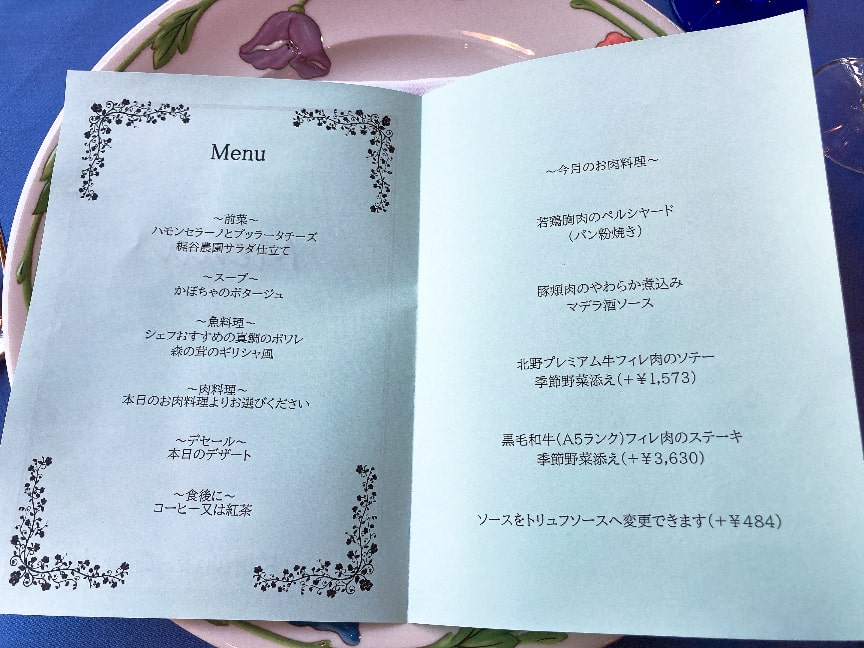 Menu
～前菜～
ハモンセラーノとブッラータチーズ
梶谷農園サラダ仕立て
～スープ～
かぼちゃのポタージュ
～魚料理～
シェフおすすめの真鯛のポワレ
森の茸のギリシャ風
～肉料理～
本日のお肉料理よりお選びください
～デセール～
本日のデザート
～食後に～
コーヒー又は紅茶
～今月のお肉料理～
若鶏胸肉のペルシャード
(パン粉焼き)
豚頬肉のやわらか煮込み
マデラ酒ソース
北野プレミアム牛フィレ肉のソテー
季節野菜添え(+¥1,573)
黒毛和牛(A5ランク)フィレ肉のステーキ
季節野菜添え(+¥3,630)
ソースをトリュフソースへ変更できます(+¥484)